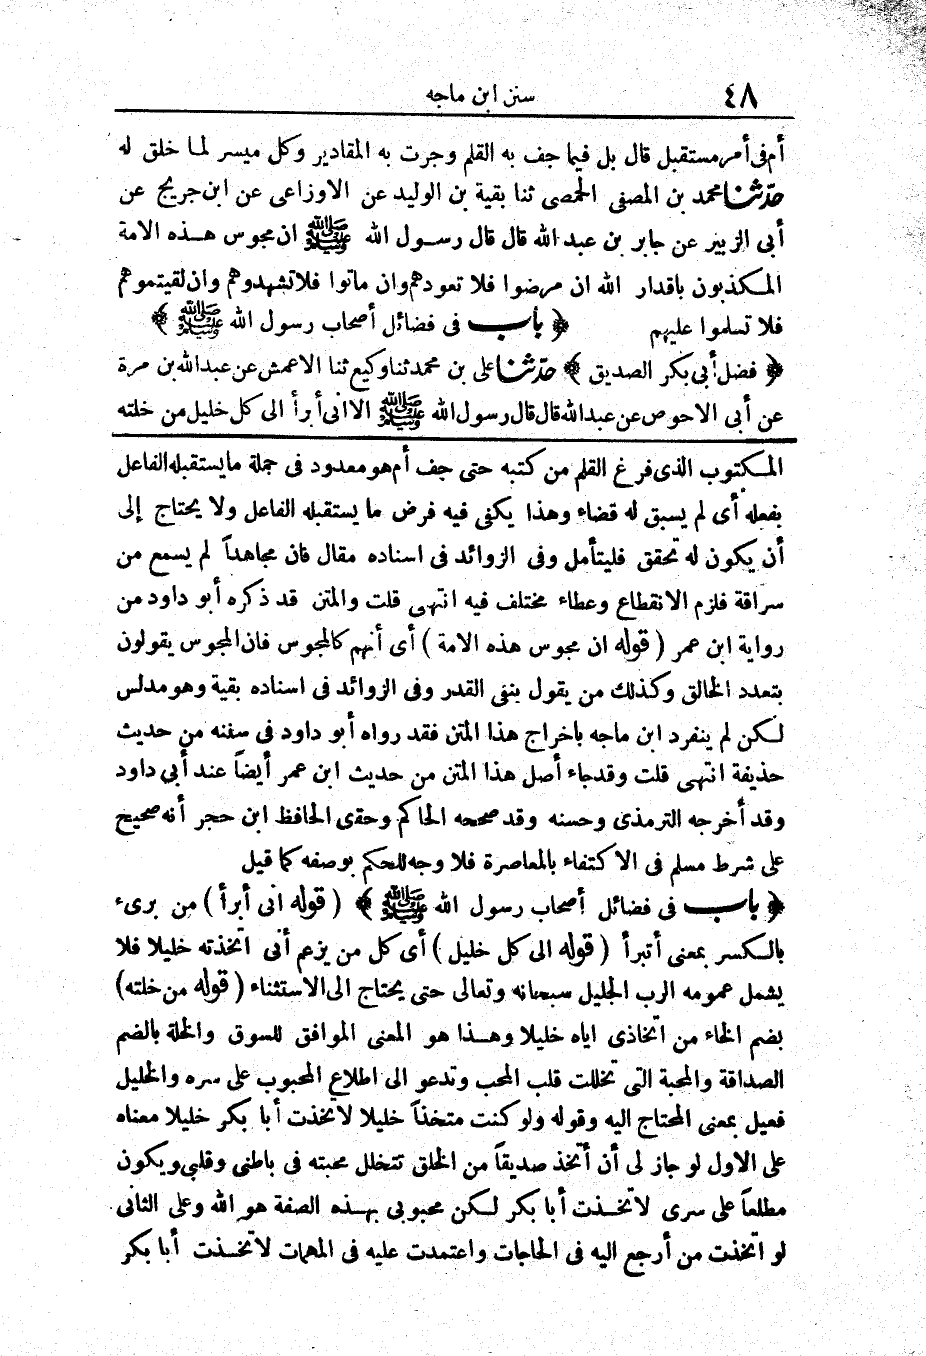 ٤٨
سنن ابن ماجه
أم فى أمر مستقبل قال بل فيما جف به القلم وجرت به المقادير وكل ميسر لما خلق له
حدّثنا محمد بن المصفى الحمصى ثنا بقية بن الوليد عن الاوزاعى عن ابن جريج عن
أبى الزبير عن جابر بن عبد الله قال قال رسول الله ﷺ ان مجوس هذه الامة
المكذبون باقدار الله ان مرضوا فلا تعودهم وان ماتوا فلا تشهدوهم وان لقيتموهم
فلا تسلموا عليهم ﴿ باب فى فضائل أصحاب رسول الله ﷺ ﴾
﴿ فضل أبى بكر الصديق ﴾ حدّثنا على بن محمد ثنا وكيع ثنا الاعمش عن عبد الله بن مرة
عن أبى الاحوص عن عبد الله قال قال رسول الله ﷺ الا انى أبرأ الى كل خليل من خلته
المكتوب الذى فرغ القلم من كتبه حتى جف أم هو معدود فى جملة ما يستقبله الفاعل
بفعله أى لم يسبق له قضاء وهذا يكفى فيه فرض ما يستقبله الفاعل ولا يحتاج إلى
أن يكون له تحقق فليتأمل وفى الزوائد فى اسناده مقال فان مجاهداً لم يسمع من
سراقة فلزم الانقطاع وعطاء مختلف فيه انتهى قلت والمتن قد ذكره أبو داود من
رواية ابن عمر ( قوله ان مجوس هذه الامة ) أى أنهم كالمجوس فان المجوس يقولون
بتعدد الخالق وكذلك من يقول بنفى القدر وفى الزوائد فى اسناده بقية وهو مدلس
لكن لم ينفرد ابن ماجه باخراج هذا المتن فقد رواه أبو داود فى سننه من حديث
حذيفة انتهى قلت وقد جاء أصل هذا المتن من حديث ابن عمر أيضاً عند أبى داود
وقد أخرجه الترمذى وحسنه وقد صححه الحاكم وحقى الحافظ ابن حجر أنه صحيح
على شرط مسلم فى الاكتفاء بالمعاصرة فلا وجه للحكم بوصفه كما قيل
﴿ باب فى فضائل أصحاب رسول الله ﷺ ﴾ ( قوله انى أبرأ ) من برىء
بالكسر بمعنى أتبرأ ( قوله الى كل خليل ) أى كل من يزعم أنى اتخذته خليلا فلا
يشمل عمومه الرب الجليل سبحانه وتعالى حتى يحتاج الى الاستثناء ( قوله من خلته )
بضم الخاء من اتخاذى اياه خليلا وهذا هو المعنى الموافق للسوق والخلة بالضم
الصداقة والمحبة التى تخللت قلب المحب وتدعو الى اطلاع المحبوب على سره والخليل
فعيل بمعنى المحتاج اليه وقوله ولو كنت متخذاً خليلا لاتخذت أبا بكر خليلا معناه
على الاول لو جاز لى أن أتخذ صديقاً من الخلق تتخلل محبته فى باطنى وقلبى ويكون
مطلعاً على سرى لاتخذت أبا بكر لكن محبوبى بهذه الصفة هو الله وعلى الثانى
لو اتخذت من أرجع اليه فى الحاجات واعتمدت عليه فى المهمات لاتخذت أبا بكر